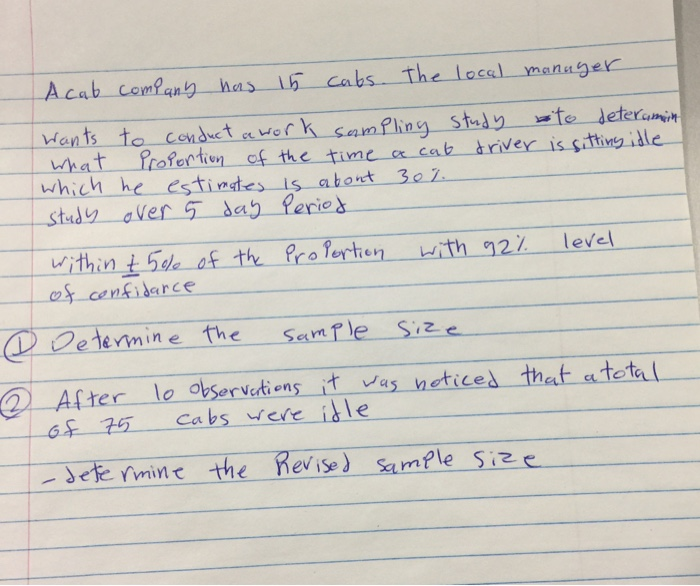 A cab company has 15 cabs. The local manager
wants to conduct a work sampling study to deteramin
what Proportion of the time a cab driver is sitting idle
which he estimates is about 30%.
study over 5 day Period
within ± 5% of the Proportion with 92% level
of confidarce
① Determine the sample size
② After 10 observations it was noticed that a total
of 75 cabs were idle
- determine the Revised sample size